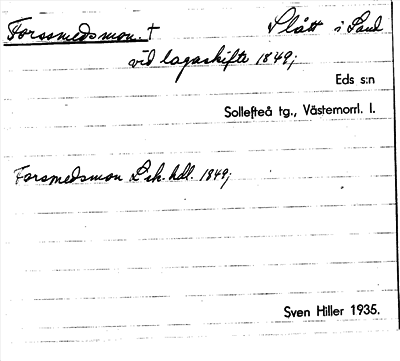 Forssmedsmon. † Slått i Sand
vid lagaskifte 1849;
Eds s:n
Sollefteå tg., Västernorrl. l.
Forsmedsmon L sk. hdl. 1849;
Sven Hiller 1935.